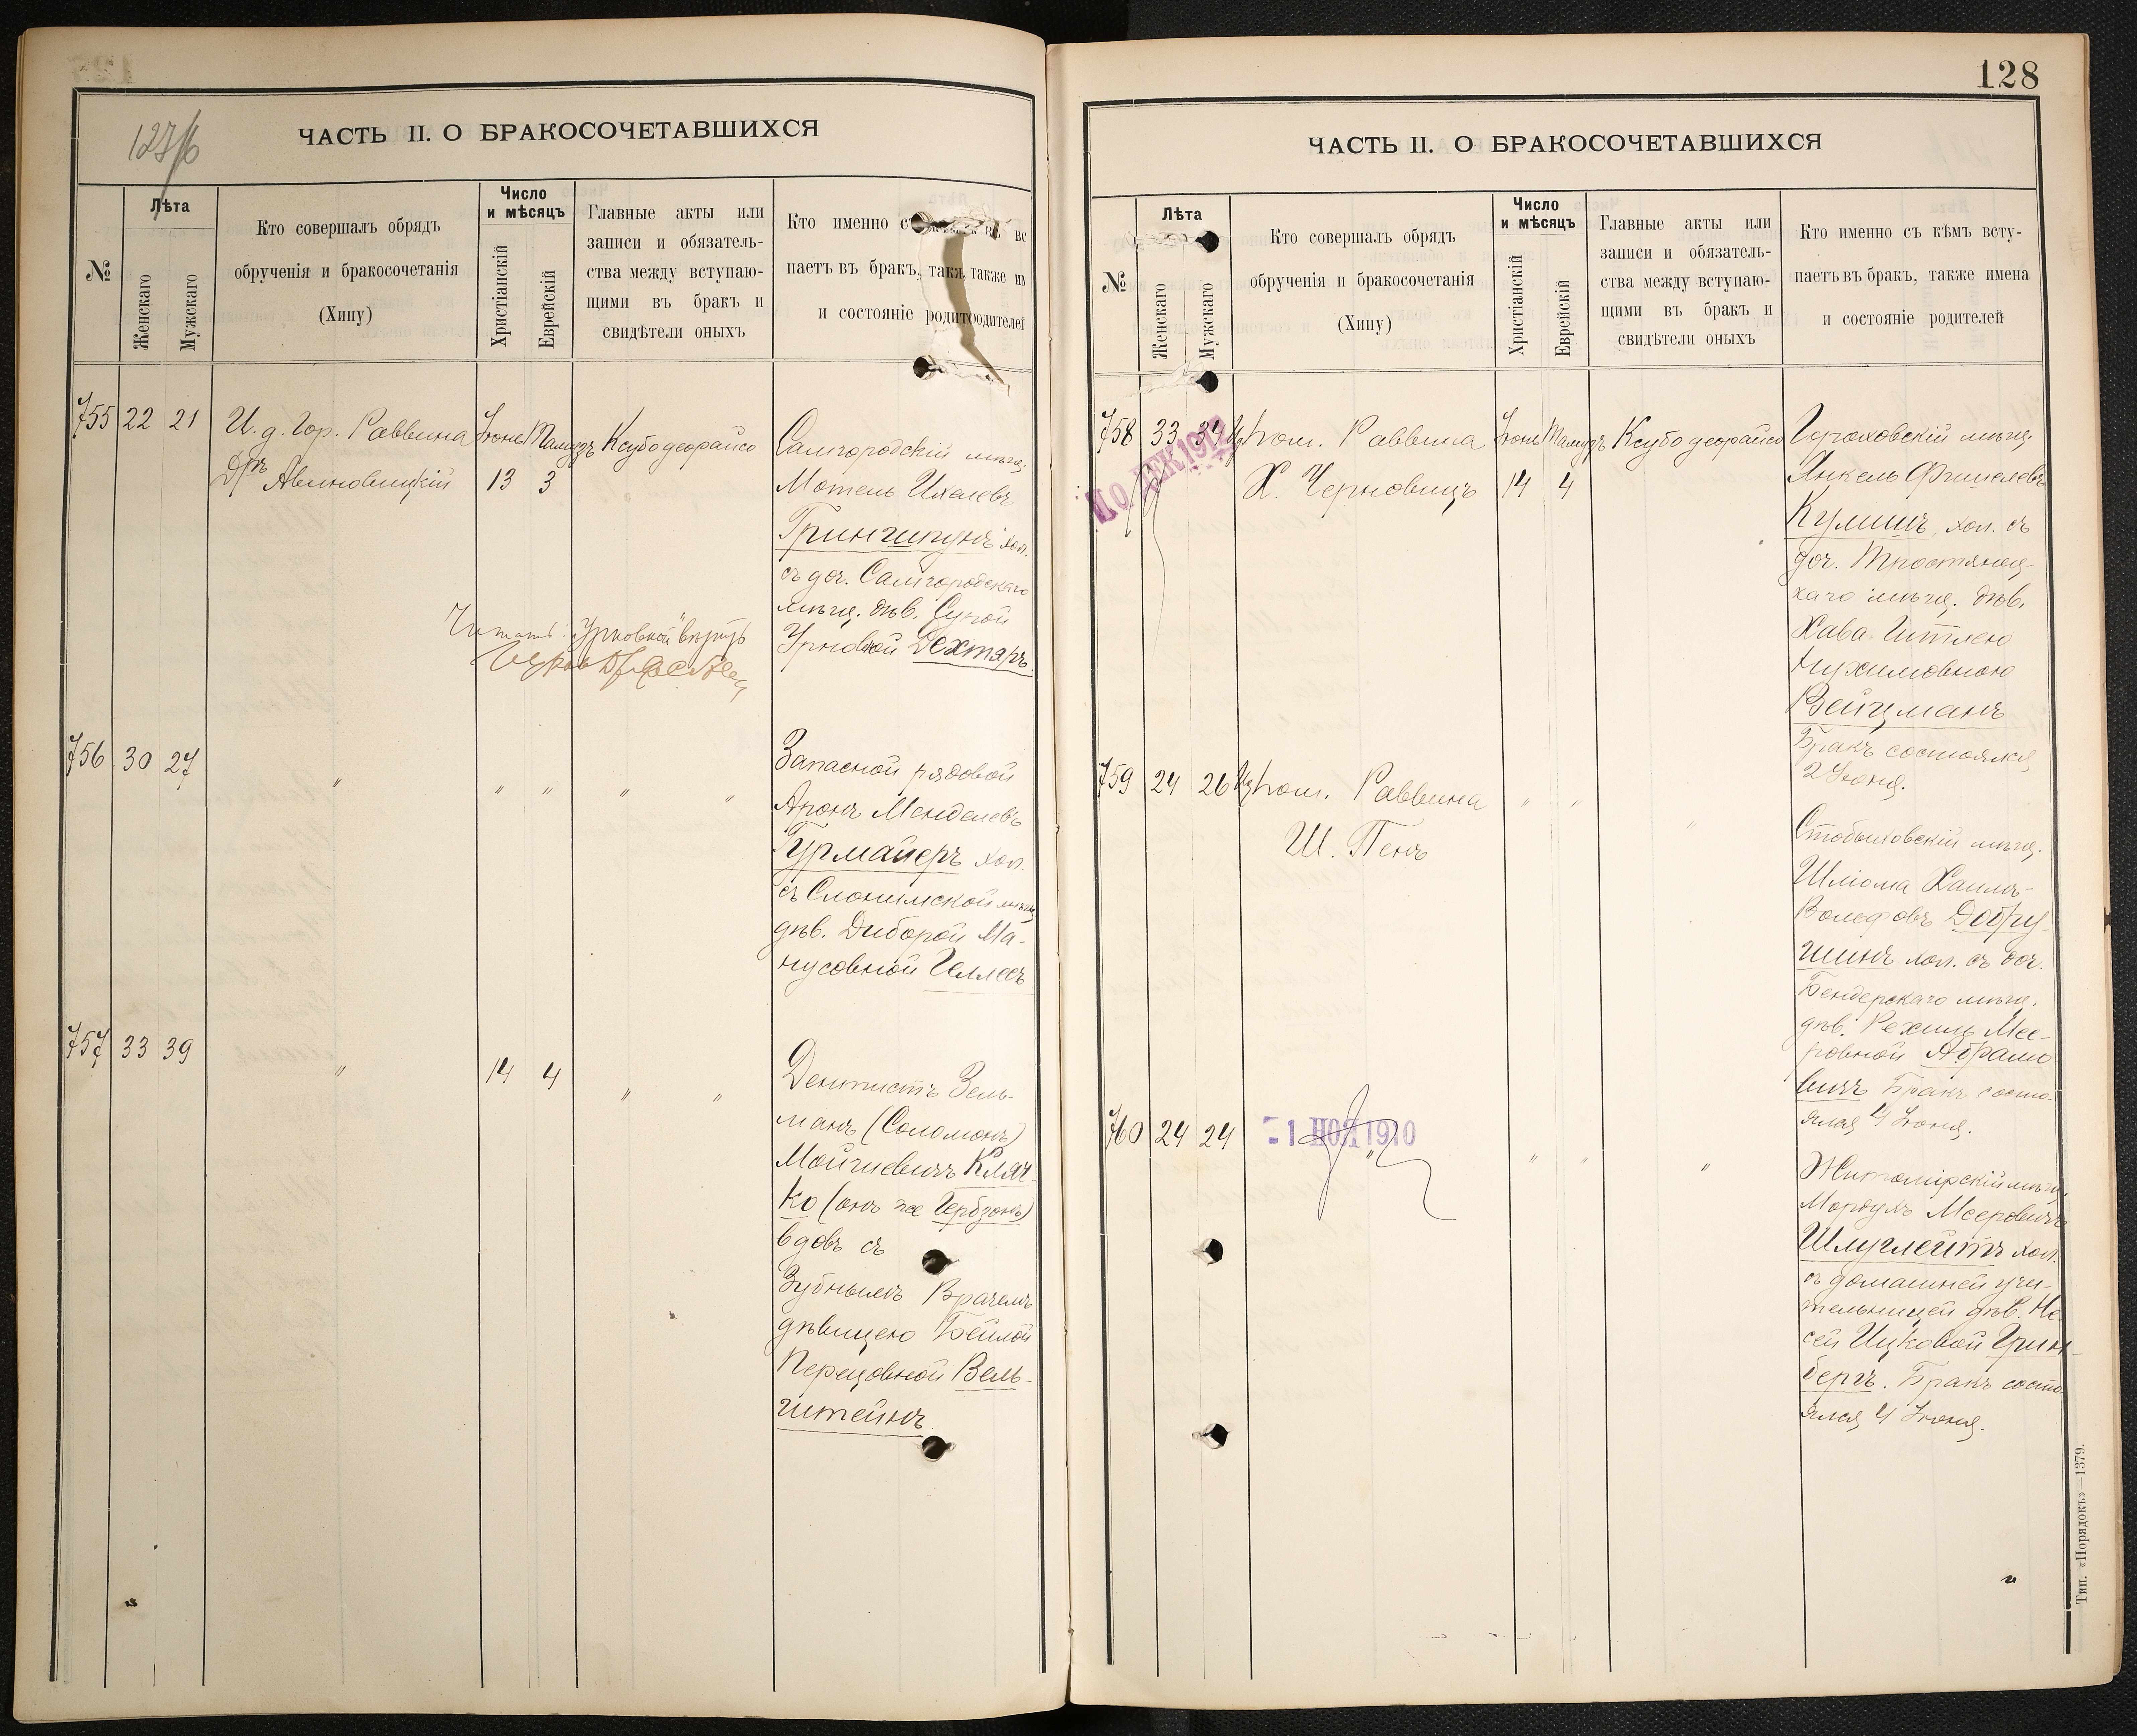 127/б
ЧАСТЬ II. О БРАКОСОЧЕТАВШИХСЯ
№
Лѣта
Женскаго
Мужскаго
Кто совершалъ обрядъ
обрученія и бракосочетанія
(Хипу)
Число
и мѣсяцъ
Христіанскій
Еврейскій
Главные акты или
записи и обязатель-
ства между вступаю-
щими въ бракъ и
свидѣтели оныхъ
Кто именно
паетъ въ бракъ, также
и состояніе
755 22 21 И. д. Гор. Раввина Іюнь Тамузъ Ксубо деорайсо
Дръ Авиновицкій 13 3
Самгородскій мѣщ.
Мотель Ихелевъ
Грингипунъ хол.
съ доч. Самгородскаго
мѣщ. дѣв. Сурой
Урновной Дехтяръ
Читать:
756 30 27 " " " " "
Запасной рядовой
Аронъ Менделевъ
Гурмайеръ хол.
съ Слонимской мѣщ
дѣв. Диборой Ма-
нусовной Геллесъ
757 33 39 " 14 4 " "
Дентистъ Зель-
манъ (Соломонъ)
Мойшевичъ Кляч-
ко (онъ же Гербзонъ)
вдовъ съ
Зубнымъ Врачемъ
дѣвицею Бейлой
Перецовной Вель-
штейнъ
128
ЧАСТЬ II. О БРАКОСОЧЕТАВШИХСЯ
№
Лѣта
Женскаго
Мужскаго
Кто совершалъ обрядъ
обрученія и бракосочетанія
(Хипу)
Число
и мѣсяцъ
Христіанскій
Еврейскій
Главные акты или
записи и обязатель-
ства между вступаю-
щими въ бракъ и
свидѣтели оныхъ
Кто именно съ кѣмъ всту-
паетъ въ бракъ, также имена
и состояніе родителей
758 33 34 Пом. Раввина Іюнь Тамузъ Ксубо деорайсо
Х. Черновицъ 14 4
Гороховскій мѣщ.
Янкель Фишелевъ
Кулишъ, хол. съ
доч. Тростянец-
каго мѣщ. дѣв.
Хава Гитлею
Нухимовною
Вейцманъ
Бракъ состоялся
2 Іюня.
759 24 26 Пом. Раввина " " "
Ш. Пенъ
мѣщ.
Шліома Хаимъ-
Волефовъ Добру-
шинъ хол. съ доч.
Бендерскаго мѣщ.
дѣв. Рехиль Мее-
ровной Абрамо
вичъ Бракъ состо-
ялся 4 Іюня.
760 24 24 1 НОЯ 1910 " " " "
Житомірскій мѣщ.
Мордухъ Мееровичъ
Шлуглейтъ хол.
съ домашней учи-
тельницей дѣв. Не
сей Ицковой Грин-
бергъ. Бракъ состо
ялся 4 Іюня.
Тип. «Порядокъ»—1379.